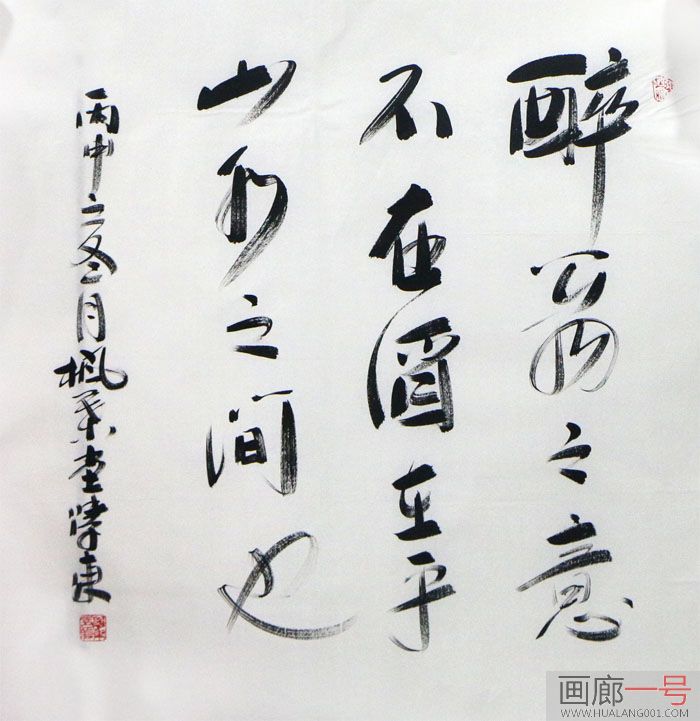 醉翁之意
不在酒在乎
山水之间也
丙申之冬月楓葉堂東
画廊一号
WWW.HUALANG001.COM